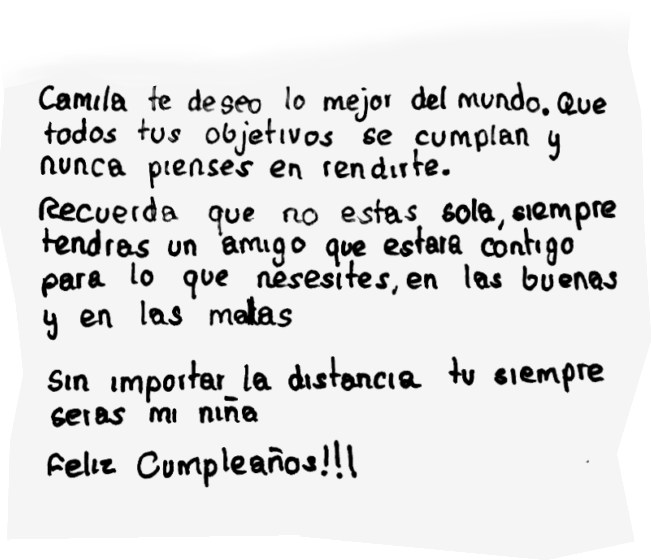 Camila te deseo lo mejor del mundo. Que
todos tus objetivos se cumplan y
nunca pienses en rendirte.
Recuerda que no estas sola, siempre
tendras un amigo que estara contigo
para lo que nesesites, en las buenas
y en las malas
Sin importar la distancia tu siempre
seras mi niña
Feliz Cumpleaños!!!